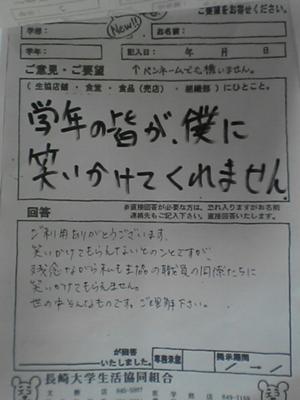 New!!
ご要望をお寄せください。
学部：
お名前：
学年：
記入日： 年 月 日
ご意見・ご要望
↑ペンネームでも構いません。
（生協店舗・食堂・食品（売店）・組織部）にひとこと。
学年の皆が、僕に
笑いかけてくれません
回答
※直接回答が必要な方は、恐れ入りますがお名前
連絡先もご記入下さい。直接回答いたします。
ご利用ありがとうございます。
笑いかけてもらえないとのことですが、
残念ながら私も生協の職員の同僚たちに
笑いかけてもらえません。
世の中そんなものです。ご理解下さい。
が回答
いたしました。
専務承認
掲示期間
／ ～ ／
長崎大学生活協同組合
文教店 845-5887
医学部店 849-7159